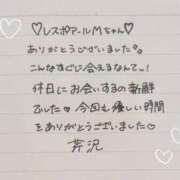 ♡レスポアールMちゃん♡
ありがとうございました。
こんなすぐに会えるなんて…!
休日にお会いするの新鮮
でした♡ 今回も優しい時間
をありがとうございました♡
芹沢